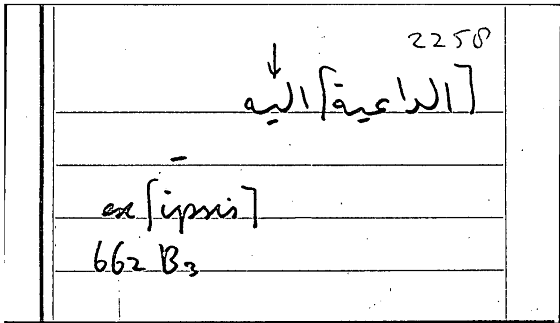 2258
↓
[الداعية] اليه
–
ex [ipsis]
662 B₃